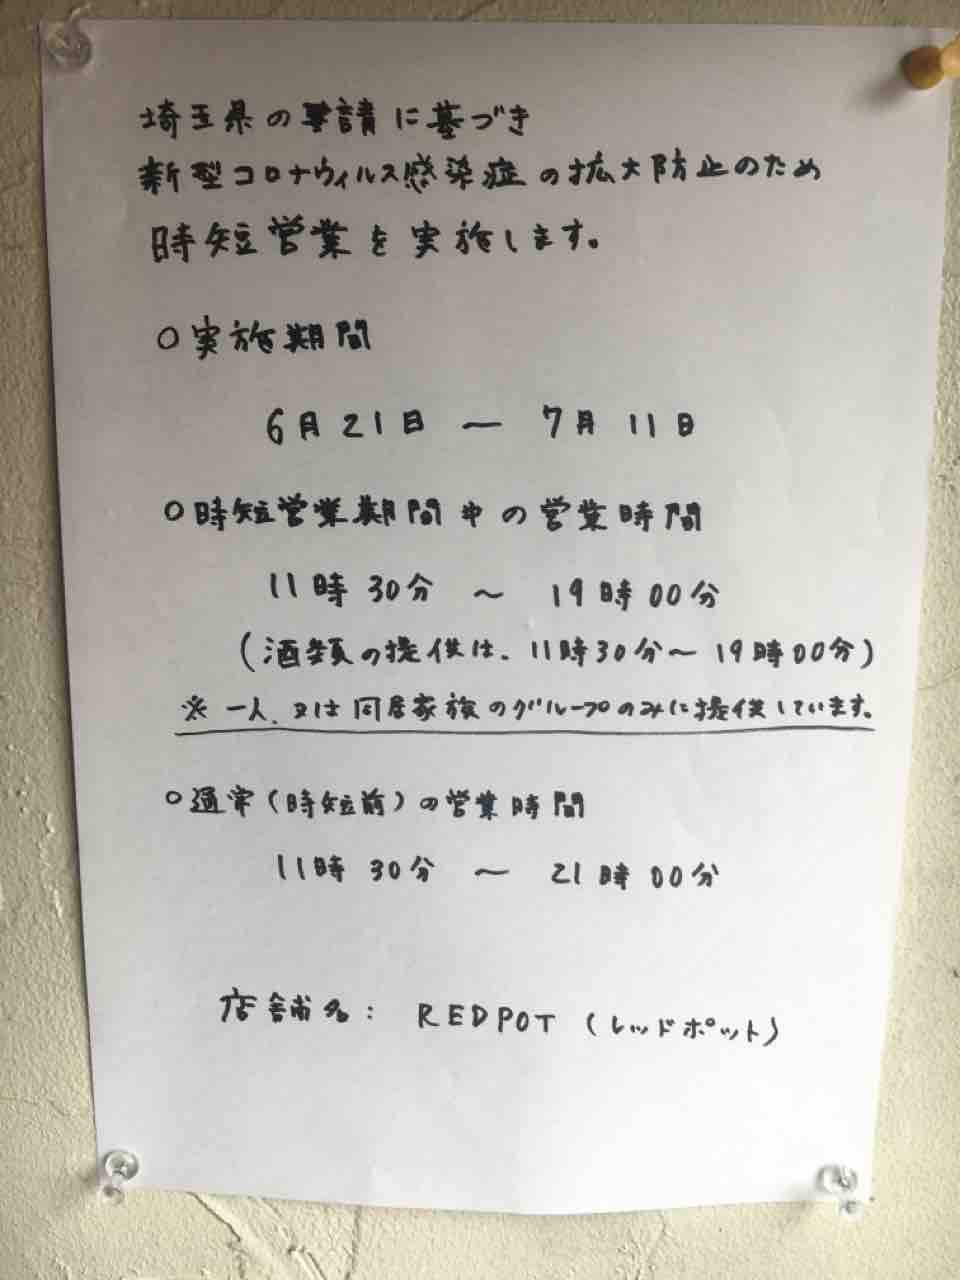 埼玉県の要請に基づき
新型コロナウィルス感染症の拡大防止のため
時短営業を実施します。
○実施期間
6月21日 ― 7月11日
○時短営業期間中の営業時間
11時30分 ～ 19時00分
(酒類の提供は、11時30分～19時00分)
※一人、又は同居家族のグループのみに提供しています。
○通常(時短前)の営業時間
11時30分 ～ 21時00分
店舗名: REDPOT (レッドポット)